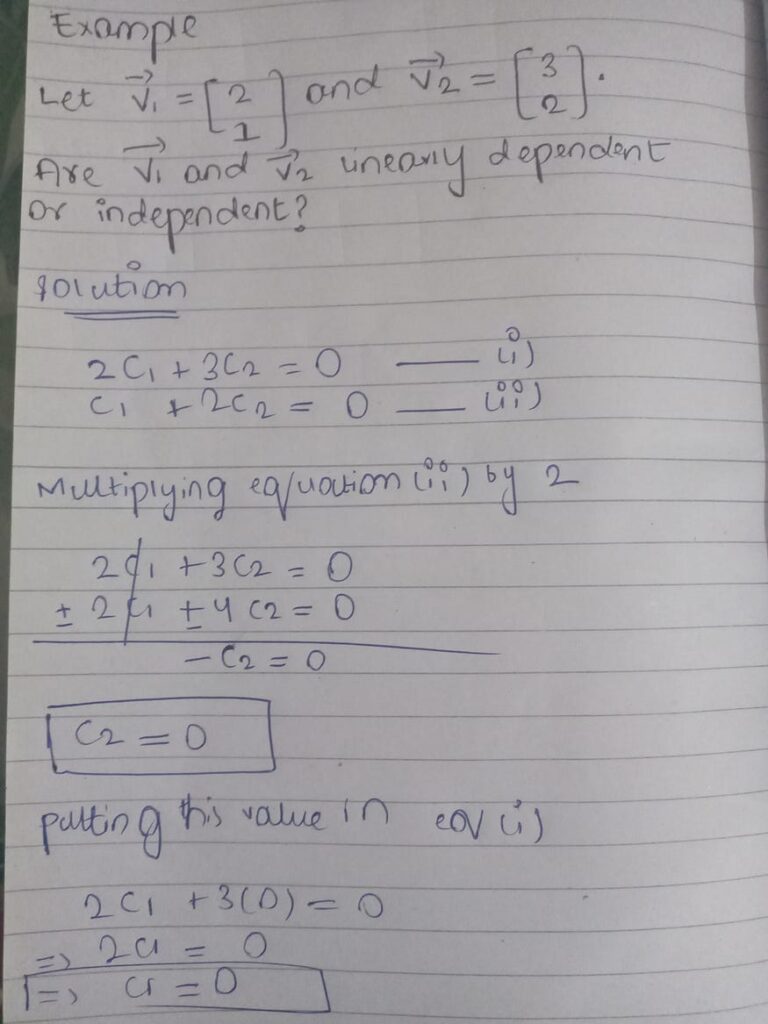 Example
Let v₁ = [2 1] and v₂ = [3 2].
Are v₁ and v₂ linearly dependent
or independent?
Solution
2C₁ + 3C₂ = 0 —— (i)
C₁ + 2C₂ = 0 —— (ii)
Multiplying equation (ii) by 2
2C₁ + 3C₂ = 0
± 2C₁ ± 4C₂ = 0
-C₂ = 0
C₂ = 0
putting this value in eq (i)
2C₁ + 3(0) = 0
=> 2C₁ = 0
=> C₁ = 0